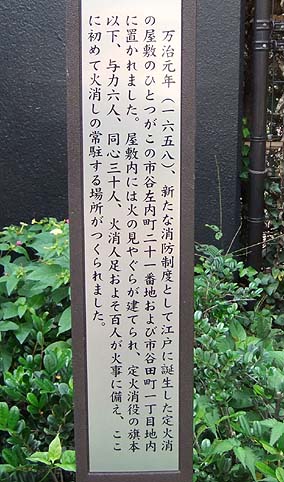 万治元年(一六五八)、新たな消防制度として江戸に誕生した定火消
の屋敷のひとつがこの市谷左内町二十一番地および市谷田町一丁目地内
に置かれました。屋敷内には火の見やぐらが建てられ、定火消役の旗本
以下、与力六人、同心三十人、火消人足およそ百人が火事に備え、ここ
に初めて火消しの常駐する場所がつくられました。